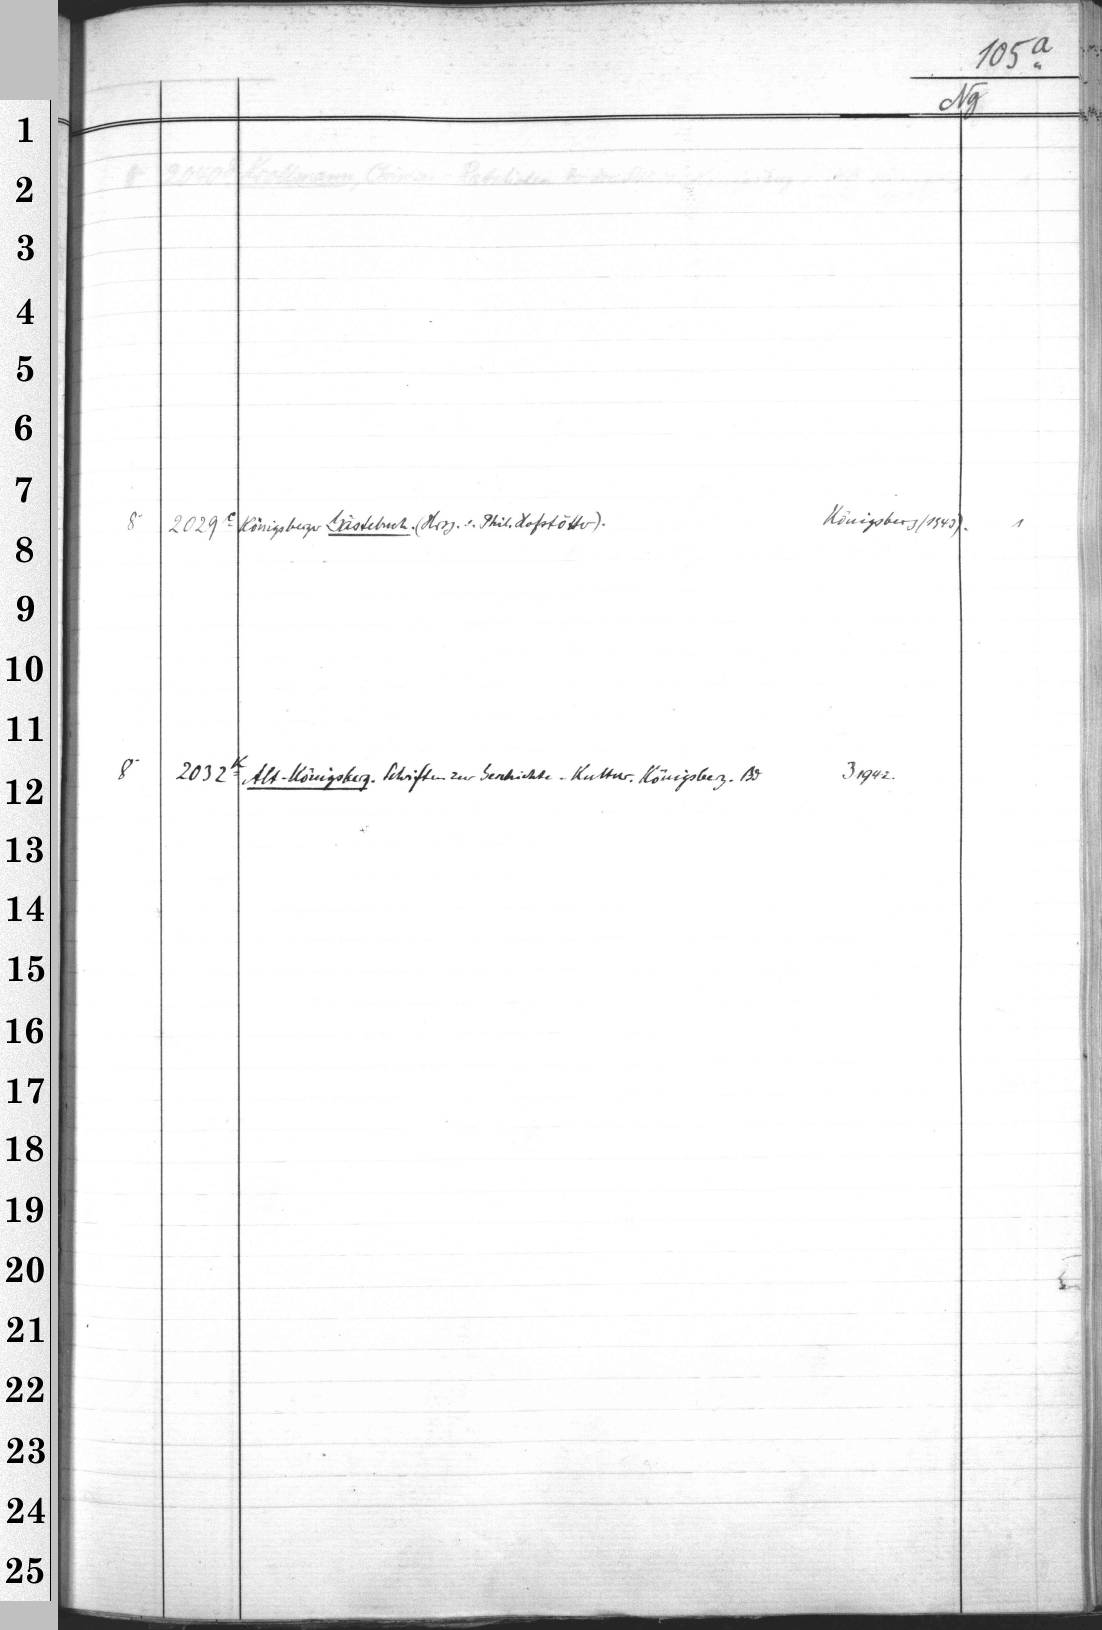 105 a
Ng
1
2
8° 2040 d Krollmann, Christian
3
4
5
6
7
8° 2029 e Königsberger Gästebuch. (Hrsg. v. Phil. Hofstötter). Königsberg (1943). 1
8
9
10
11
8° 2032 k Alt-Königsberg. Schriften zur Geschichte u. Kultur. Königsberg. Bd 3 1942.
12
13
14
15
16
17
18
19
20
21
22
23
24
25